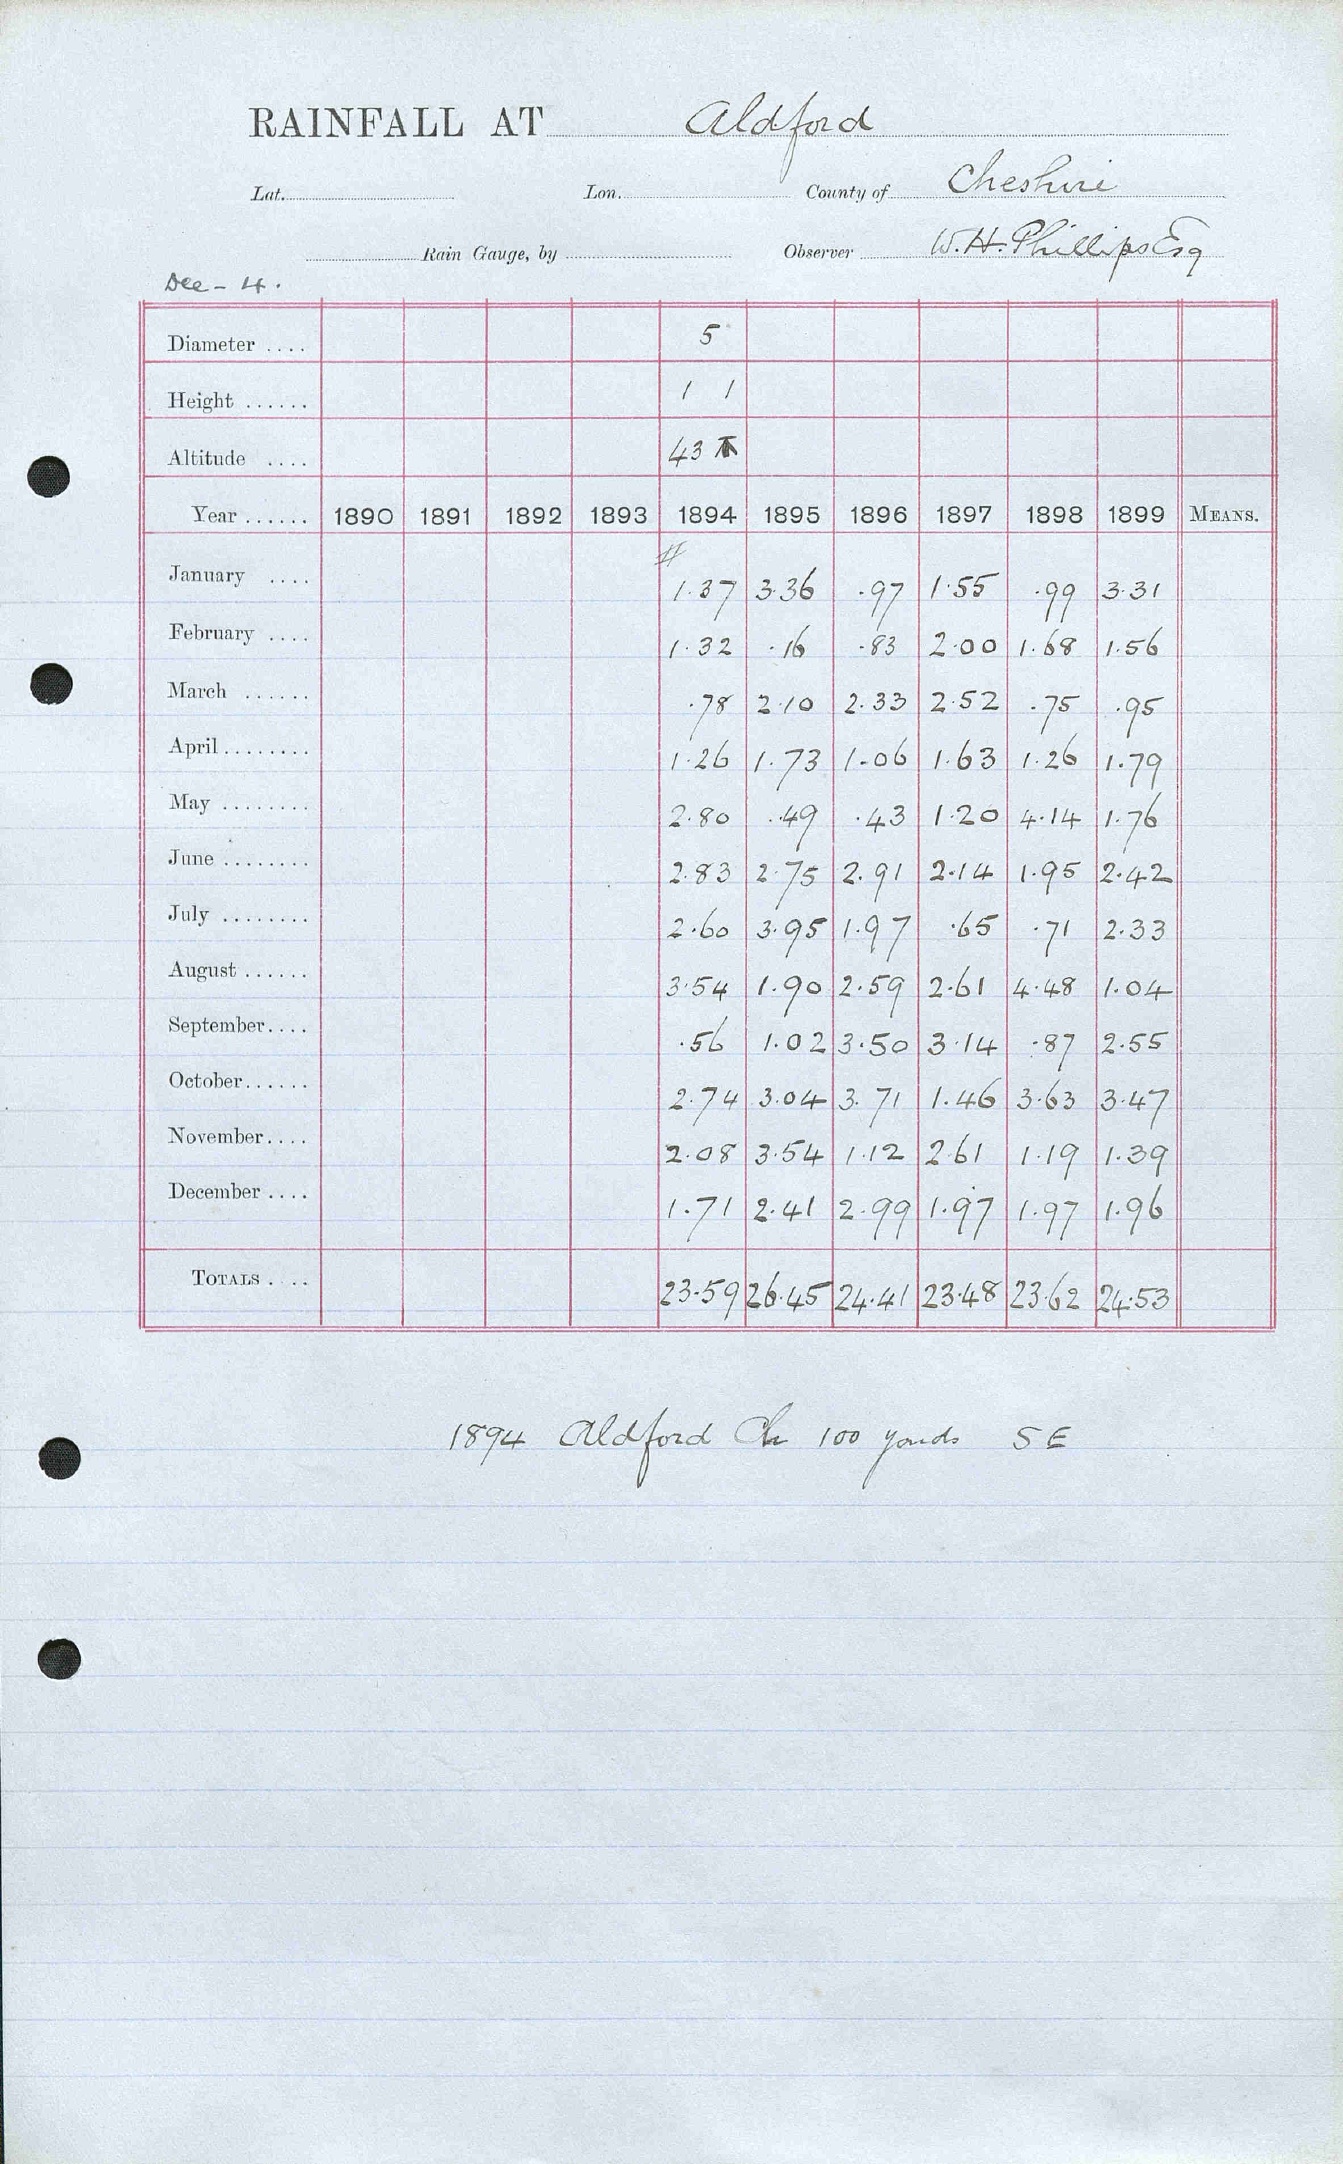 RAINFALL AT Aldford
Lat. Lon. County of Cheshire
Rain Gauge, by Observer W. H. Phillips Esq
Dee - 4.
Diameter .... 5
Height ...... 1 1
Altitude .... 43
Year ...... 1890 1891 1892 1893 1894 1895 1896 1897 1898 1899 MEANS.
#
January .... 1.37 3.36 .97 1.55 .99 3.31
February .... 1.32 .16 .83 2.00 1.68 1.56
March ...... .78 2.10 2.33 2.52 .75 .95
April ........ 1.26 1.73 1.06 1.63 1.26 1.79
May ........ 2.80 .49 .43 1.20 4.14 1.76
June ........ 2.83 2.75 2.91 2.14 1.95 2.42
July ........ 2.60 3.95 1.97 .65 .71 2.33
August ...... 3.54 1.90 2.59 2.61 4.48 1.04
September.... .56 1.02 3.50 3.14 .87 2.55
October...... 2.74 3.04 3.71 1.46 3.63 3.47
November.... 2.08 3.54 1.12 2.61 1.19 1.39
December .... 1.71 2.41 2.99 1.97 1.97 1.96
TOTALS .... 23.59 26.45 24.41 23.48 23.62 24.53
1894 Aldford Ch 100 yards SE